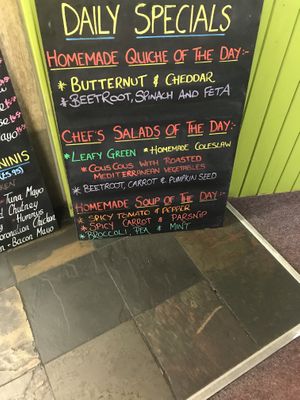 DAILY SPECIALS
HOMEMADE QUICHE OF THE DAY:-
* BUTTERNUT & CHEDDAR
* BEETROOT, SPINACH AND FETA
CHEF'S SALADS OF THE DAY:-
* LEAFY GREEN * HOMEMADE COLESLAW
* COUS COUS WITH ROASTED
MEDITERRANEAN VEGETABLES
* BEETROOT, CARROT & PUMPKIN SEED
HOMEMADE SOUP OF THE DAY:-
* SPICY TOMATO & PEPPER
* SPICY CARROT & PARSNIP
* BROCCOLI, PEA & MINT
Mayo
NINIS
Tuna Mayo
Chutney
Hummus
Coronation Chicken
Bacon Mayo